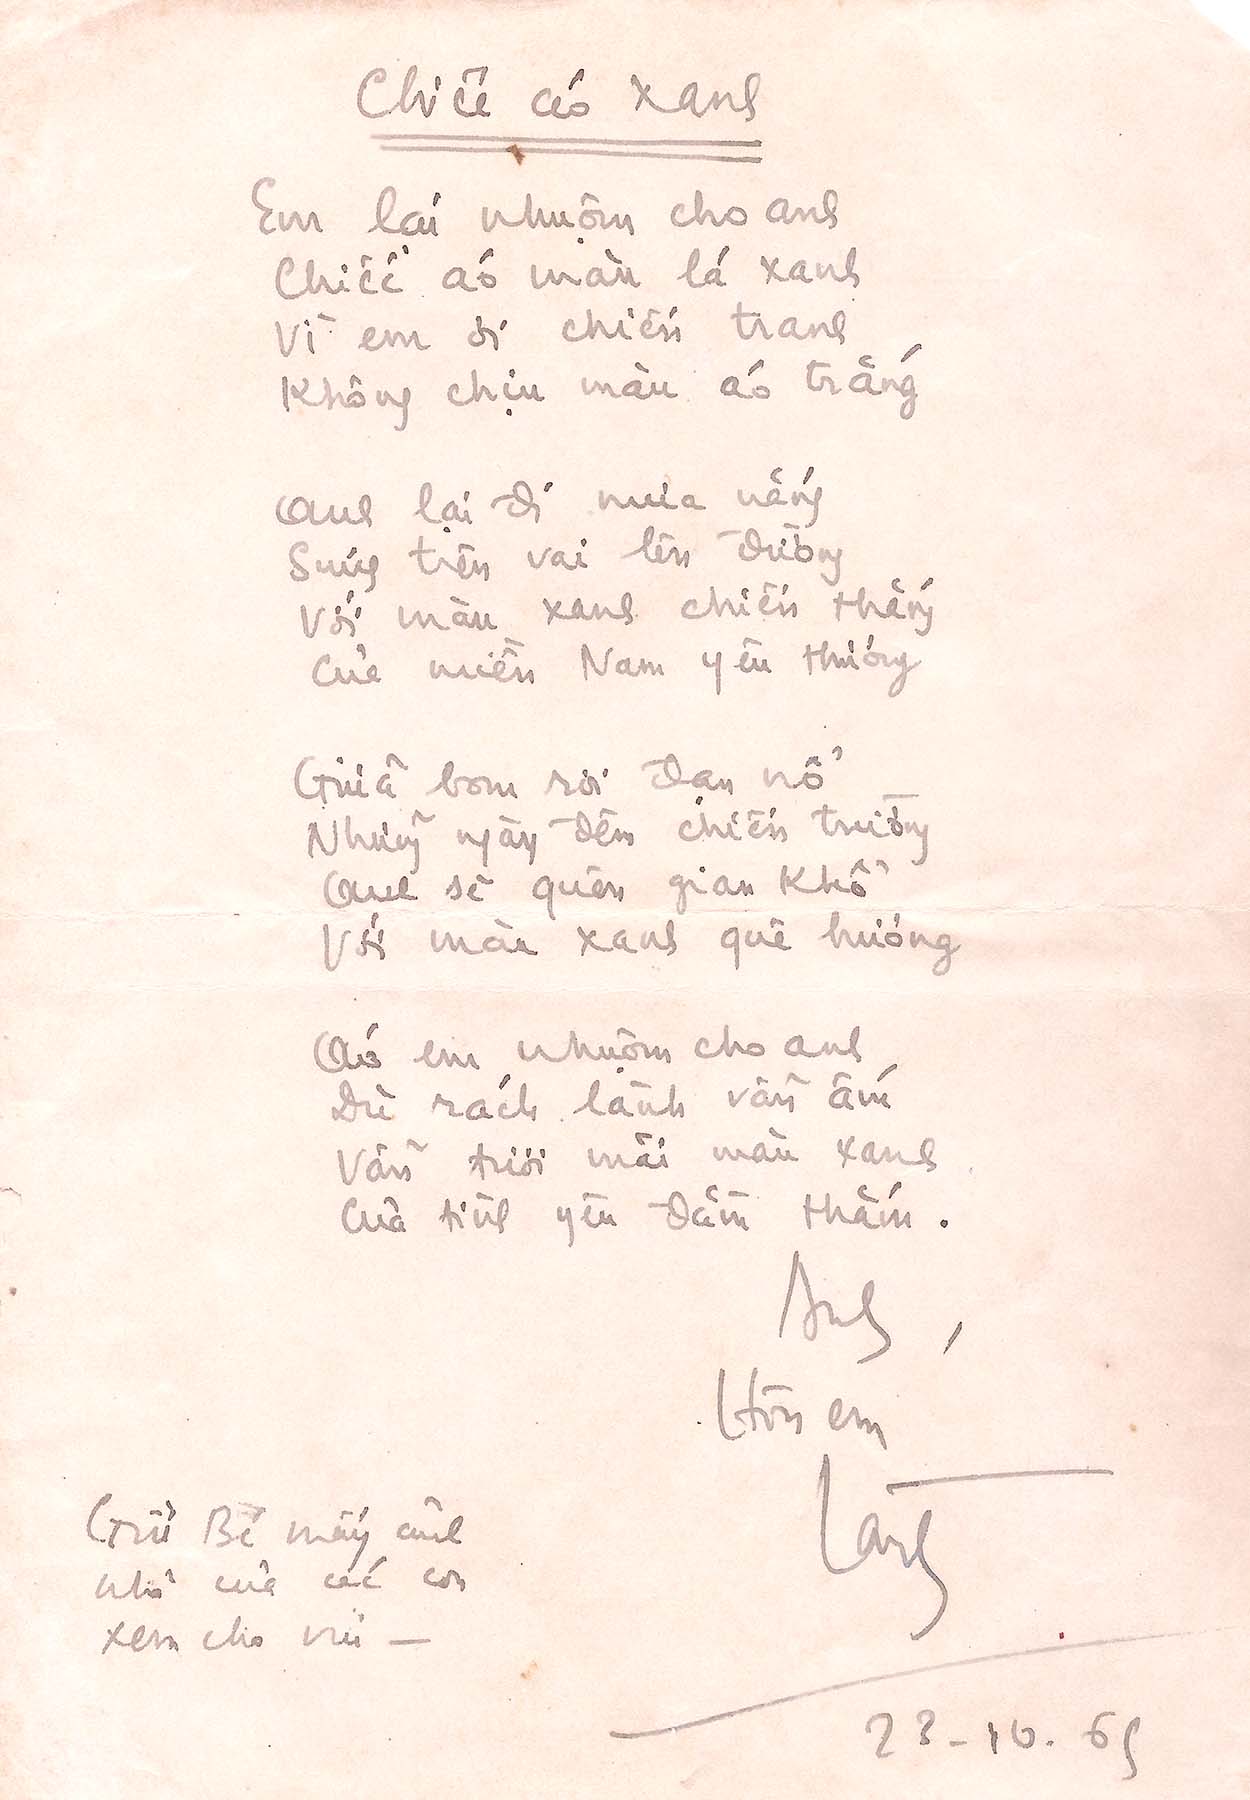 Chiếc áo xanh
Em lại nhuộm cho anh
Chiếc áo màu lá xanh
Vì em ơi chiến tranh
Không chịu màu áo trắng
Anh lại đi mưa nắng
Súng trên vai lên đường
Với màu xanh chiến thắng
Của miền Nam yêu thương
Giữa bom rơi đạn nổ
Những ngày đêm chiến trường
Anh sẽ quên gian khổ
Với màu xanh quê hương
Áo em nhuộm cho anh
Dù rách lành vẫn ấm
Vẫn tươi mãi màu xanh
Của tình yêu đằm thắm.
Anh,
Hôn em
Gửi Bé mấy ảnh
nhỏ của các con
xem cho vui —
23-10.65